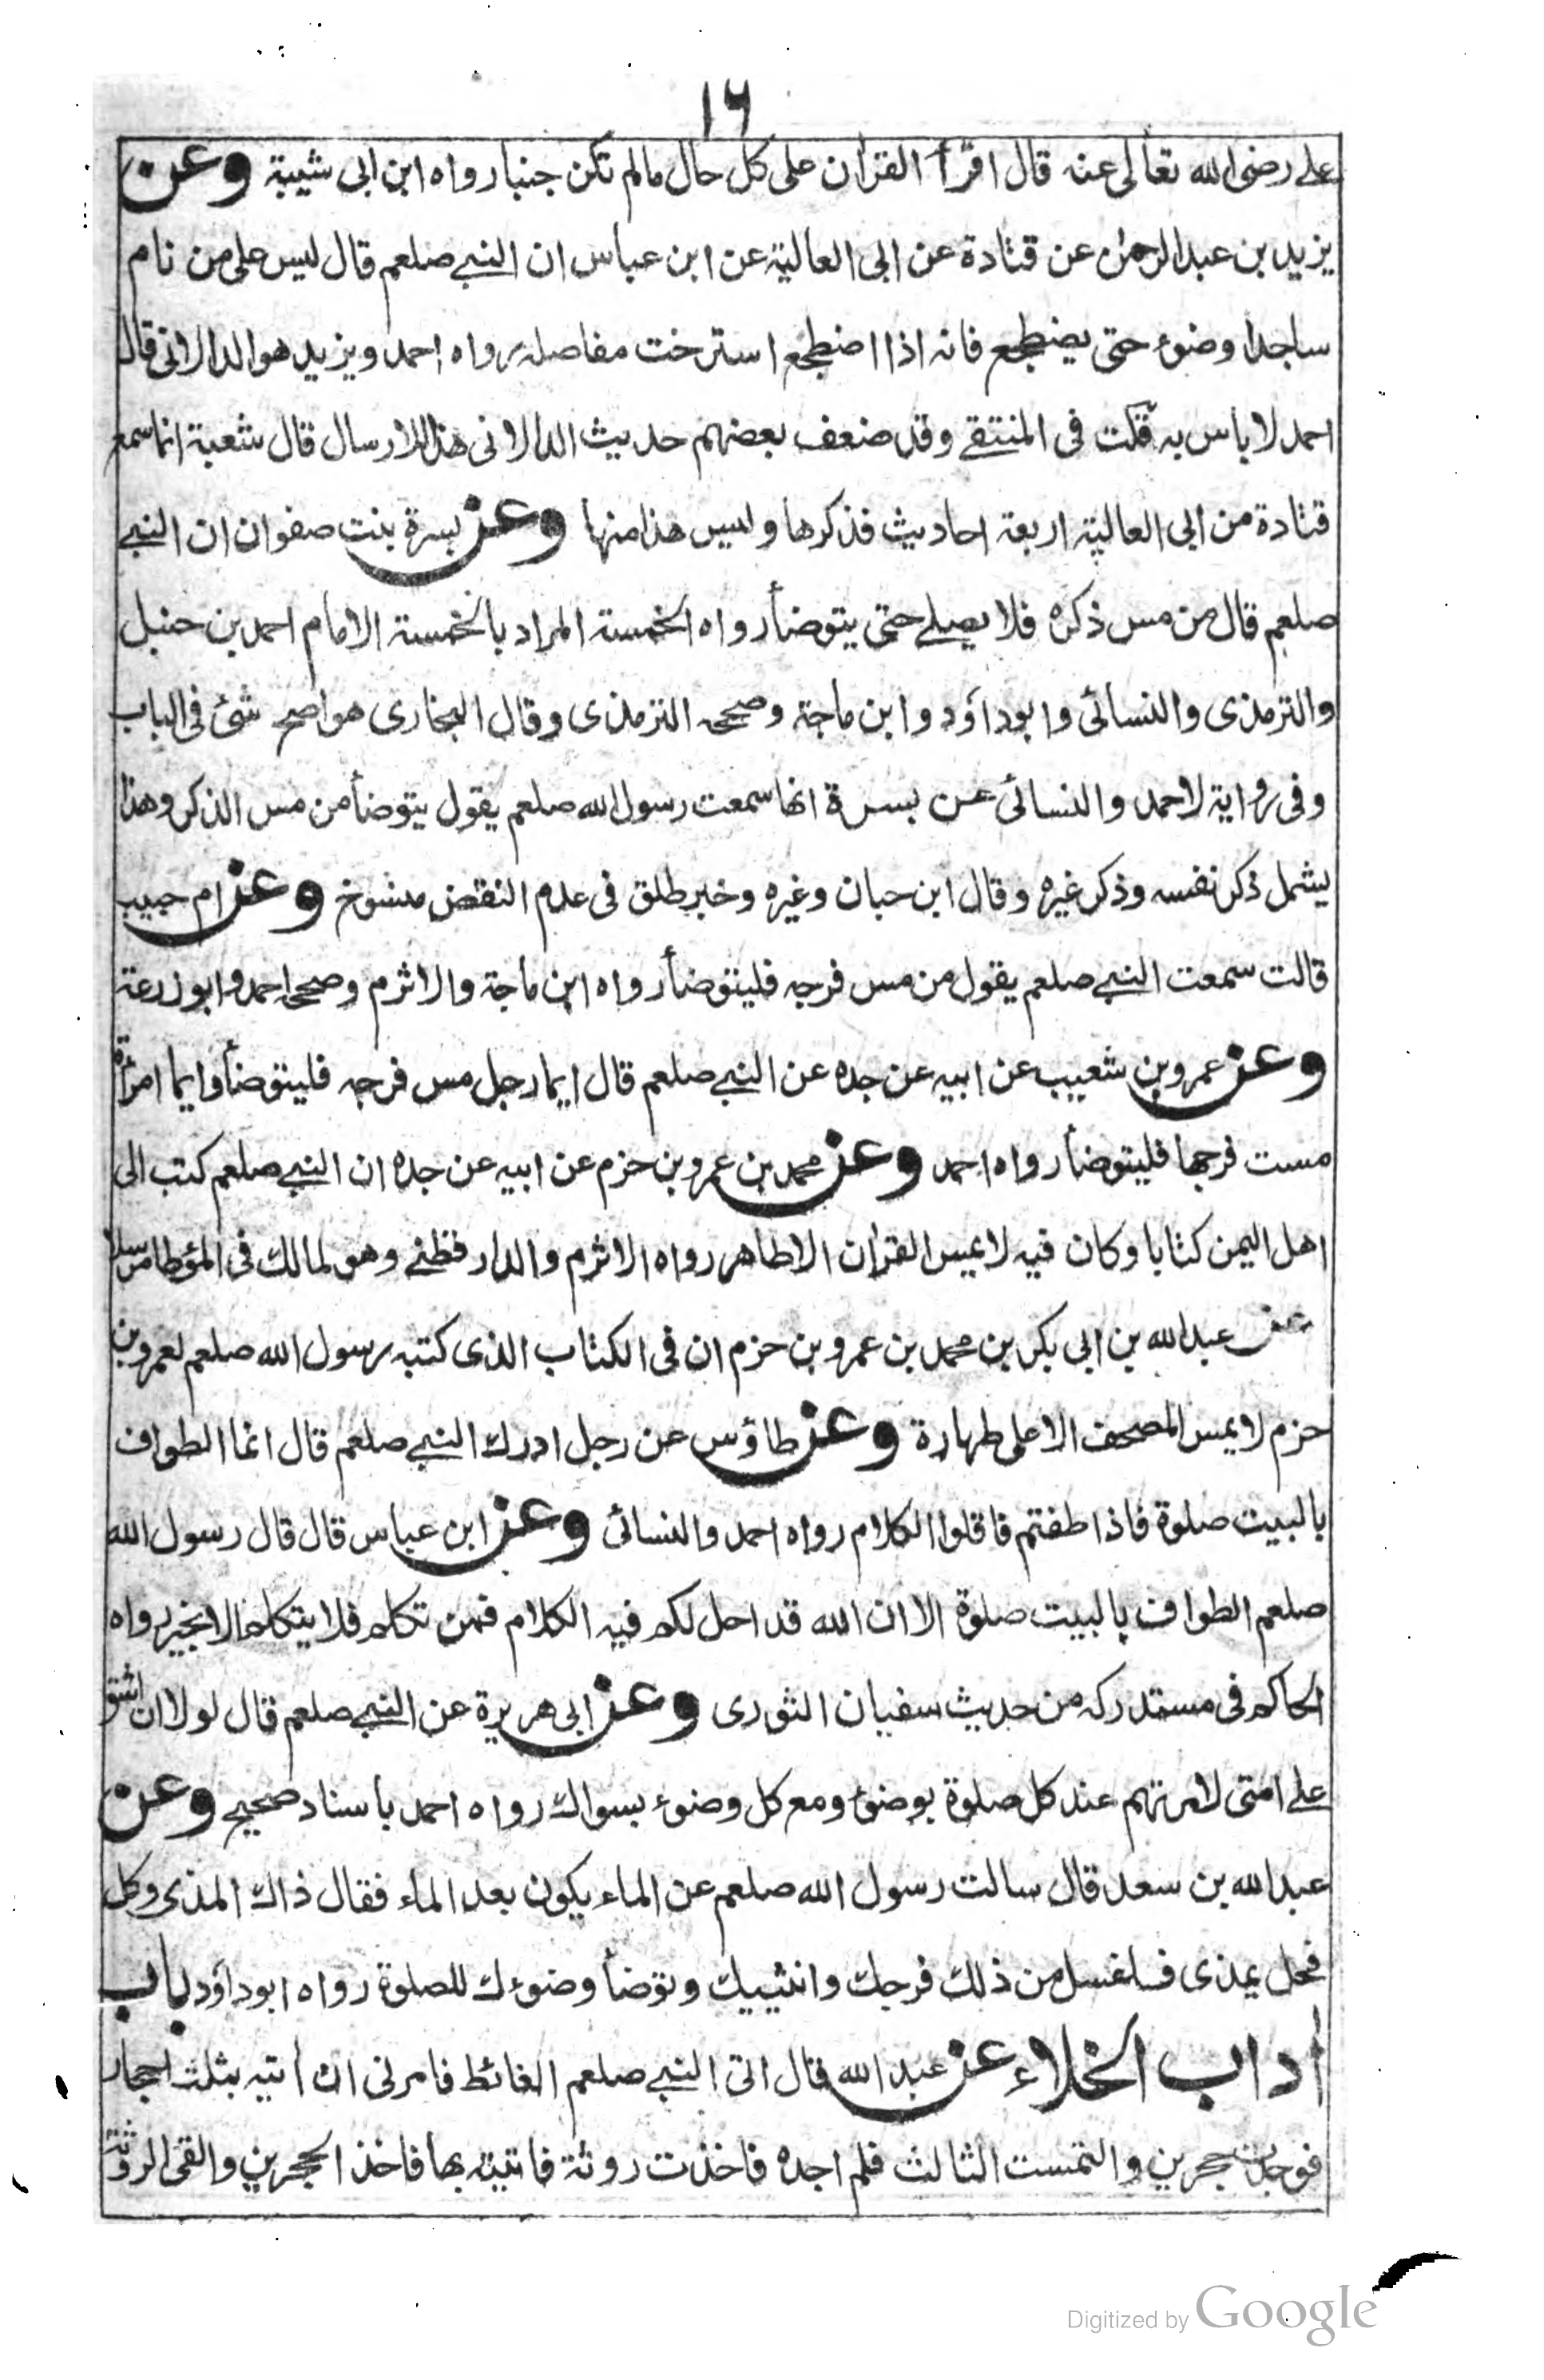 ١٦
علے رضى الله تعالى عنه قال اقرأ القران على كل حال مالم تكن جنبا رواه ابن ابى شيبة وعن
يزيد بن عبد الرحمن عن قتادة عن ابى العالية عن ابن عباس ان النبے صلعم قال ليس على من نام
ساجدا وضوء حتى يضطجع فانه اذا اضطجع استرخت مفاصله رواه احمد ويزيد هو الدالانى قال
احمد لا باس به قلت فى المنتقے وقد ضعف بعضهم حديث الدالانى هذا للارسال قال شعبة انما سمع
قتادة من ابى العالية اربعة احاديث فذكرها وليس هذا منها وعن بسرة بنت صفوان ان النبے
صلعم قال من مس ذكره فلا يصلے حتى يتوضأ رواه الخمسة المراد بالخمسة الامام احمد بن حنبل
والترمذى والنسائى وابو داؤد وابن ماجة وصححه الترمذى وقال البخارى هو اصح شئ فى الباب
وفى رواية لاحمد والنسائى عن بسرة انها سمعت رسول الله صلعم يقول يتوضأ من مس الذكر وهذا
يشمل ذكر نفسه وذكر غيره وقال ابن حبان وغيره وخبر طلق فى عدم النقض منسوخ وعن ام حبيبة
قالت سمعت النبے صلعم يقول من مس فرجه فليتوضأ رواه ابن ماجة والاثرم وصححه احمد وابو زرعة
وعن عمرو بن شعيب عن ابيه عن جده عن النبے صلعم قال ايما رجل مس فرجه فليتوضأ وايما امرأة
مست فرجها فليتوضأ رواه احمد وعن محمد بن عمرو بن حزم عن ابيه عن جده ان النبے صلعم كتب الى
اهل اليمن كتابا وكان فيه لا يمس القران الا طاهر رواه الاثرم والدارقطنے وهو لمالك فى المؤطا مرسلا
عن عبد الله بن ابى بكر بن محمد بن عمرو بن حزم ان فى الكتاب الذى كتبه رسول الله صلعم لعمرو بن
حزم لا يمس المصحف الا على طهارة وعن طاؤس عن رجل ادرك النبے صلعم قال انما الطواف
بالبيت صلوة فاذا طفتم فاقلوا الكلام رواه احمد والنسائى وعن ابن عباس قال قال رسول الله
صلعم الطواف بالبيت صلوة الا ان الله قد احل لكم فيه الكلام فمن تكلم فلا يتكلم الا بخير رواه
الحاكم فى مستدركه من حديث سفيان الثورى وعن ابى هريرة عن النبے صلعم قال لولا ان اشق
علے امتى لامرتهم عند كل صلوة بوضوء ومع كل وضوء بسواك رواه احمد باسناد صحيح وعن
عبد الله بن سعد قال سالت رسول الله صلعم عن الماء يكون بعد الماء فقال ذاك المذى وكل
فحل يمذى فلتغسل من ذلك فرجك وانثييك وتوضأ وضوءك للصلوة رواه ابو داؤد باب
أداب الخلاء عن عبد الله قال اتى النبے صلعم الغائط فامرنى ان أتيه بثلث احجار
فوجدت حجرين والتمست الثالث فلم اجده فاخذت روثة فاتيته بها فاخذ الحجرين والقى الروثة
Digitized by Google